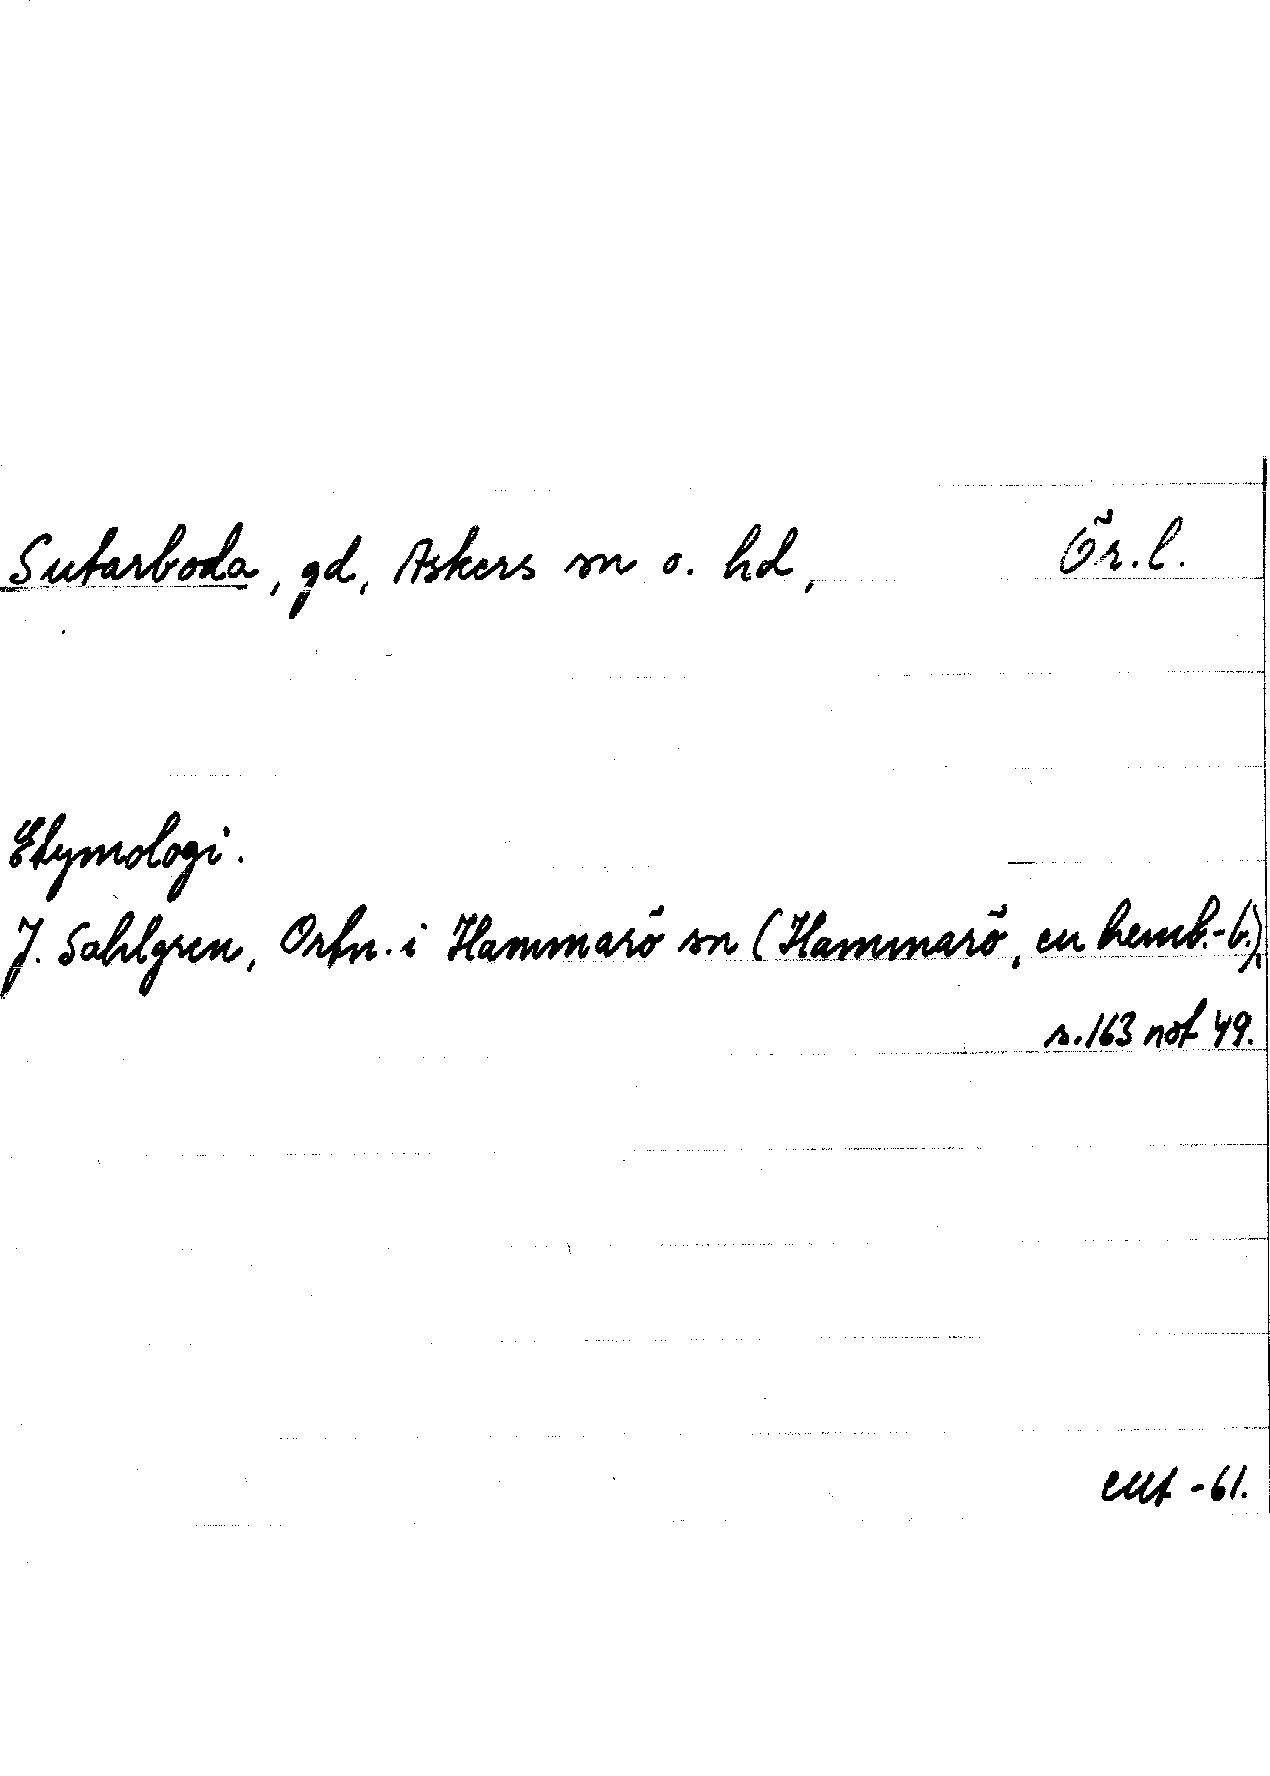 Sutarboda, gd, Askers sn o. hd, Ör. l.
Etymologi.
J. Sahlgren, Ortn. i Hammarö sn (Hammarö, en hemb.-b.),
s. 163 not 49.
-61.